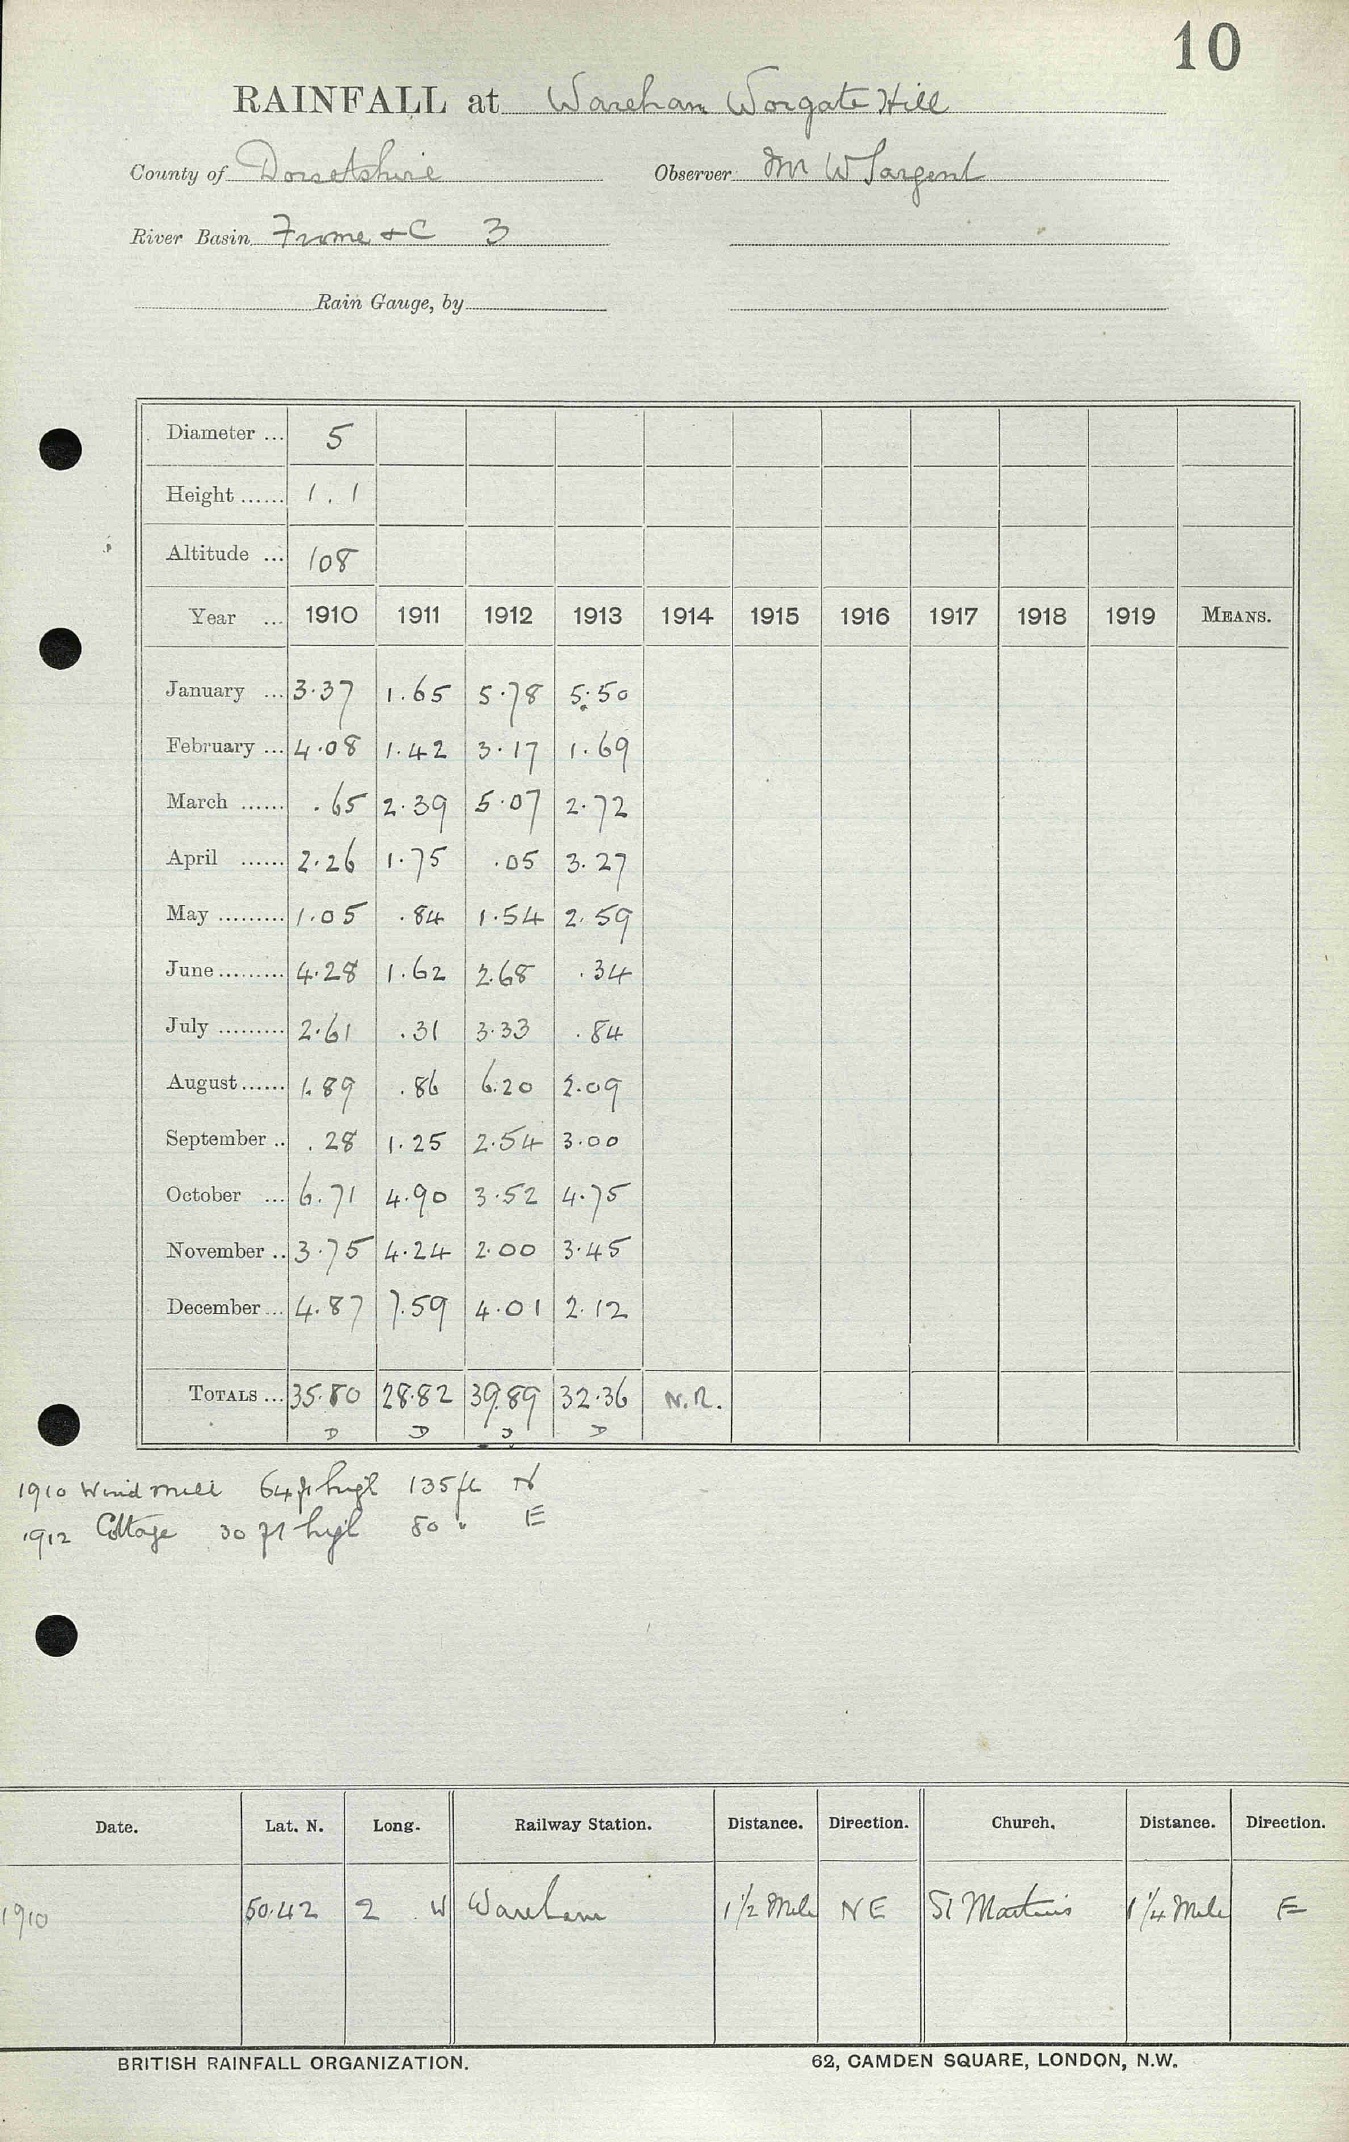 10
RAINFALL at Wareham Worgate Hill
County of Dorsetshire Observer Mr W Sargent
River Basin Frome & C 3
Rain Gauge, by
Diameter ... 5
Height ...... 1.1
Altitude ... 108
Year ... 1910 1911 1912 1913 1914 1915 1916 1917 1918 1919 MEANS.
January ... 3.37 1.65 5.78 5.50
February ... 4.08 1.42 3.17 1.69
March ...... .65 2.39 5.07 2.72
April ...... 2.26 1.75 .05 3.27
May ......... 1.05 .84 1.54 2.59
June ......... 4.28 1.62 2.68 .34
July ......... 2.61 .31 3.33 .84
August ...... 1.89 .86 6.20 2.09
September .. .28 1.25 2.54 3.00
October ... 6.71 4.90 3.52 4.75
November .. 3.75 4.24 2.00 3.45
December ... 4.87 7.59 4.01 2.12
TOTALS ... 35.80 28.82 39.89 32.36 N.R.
D D D D
1910 Wind mill 64 ft high 135 ft N
1912 Cottage 30 ft high 80 " E
Date. Lat. N. Long. Railway Station. Distance. Direction. Church. Distance. Direction.
1910 50.42 2 W Wareham 1 1/2 Mile NE St Martins 1 1/4 Mile E
BRITISH RAINFALL ORGANIZATION. 62, CAMDEN SQUARE, LONDON, N.W.